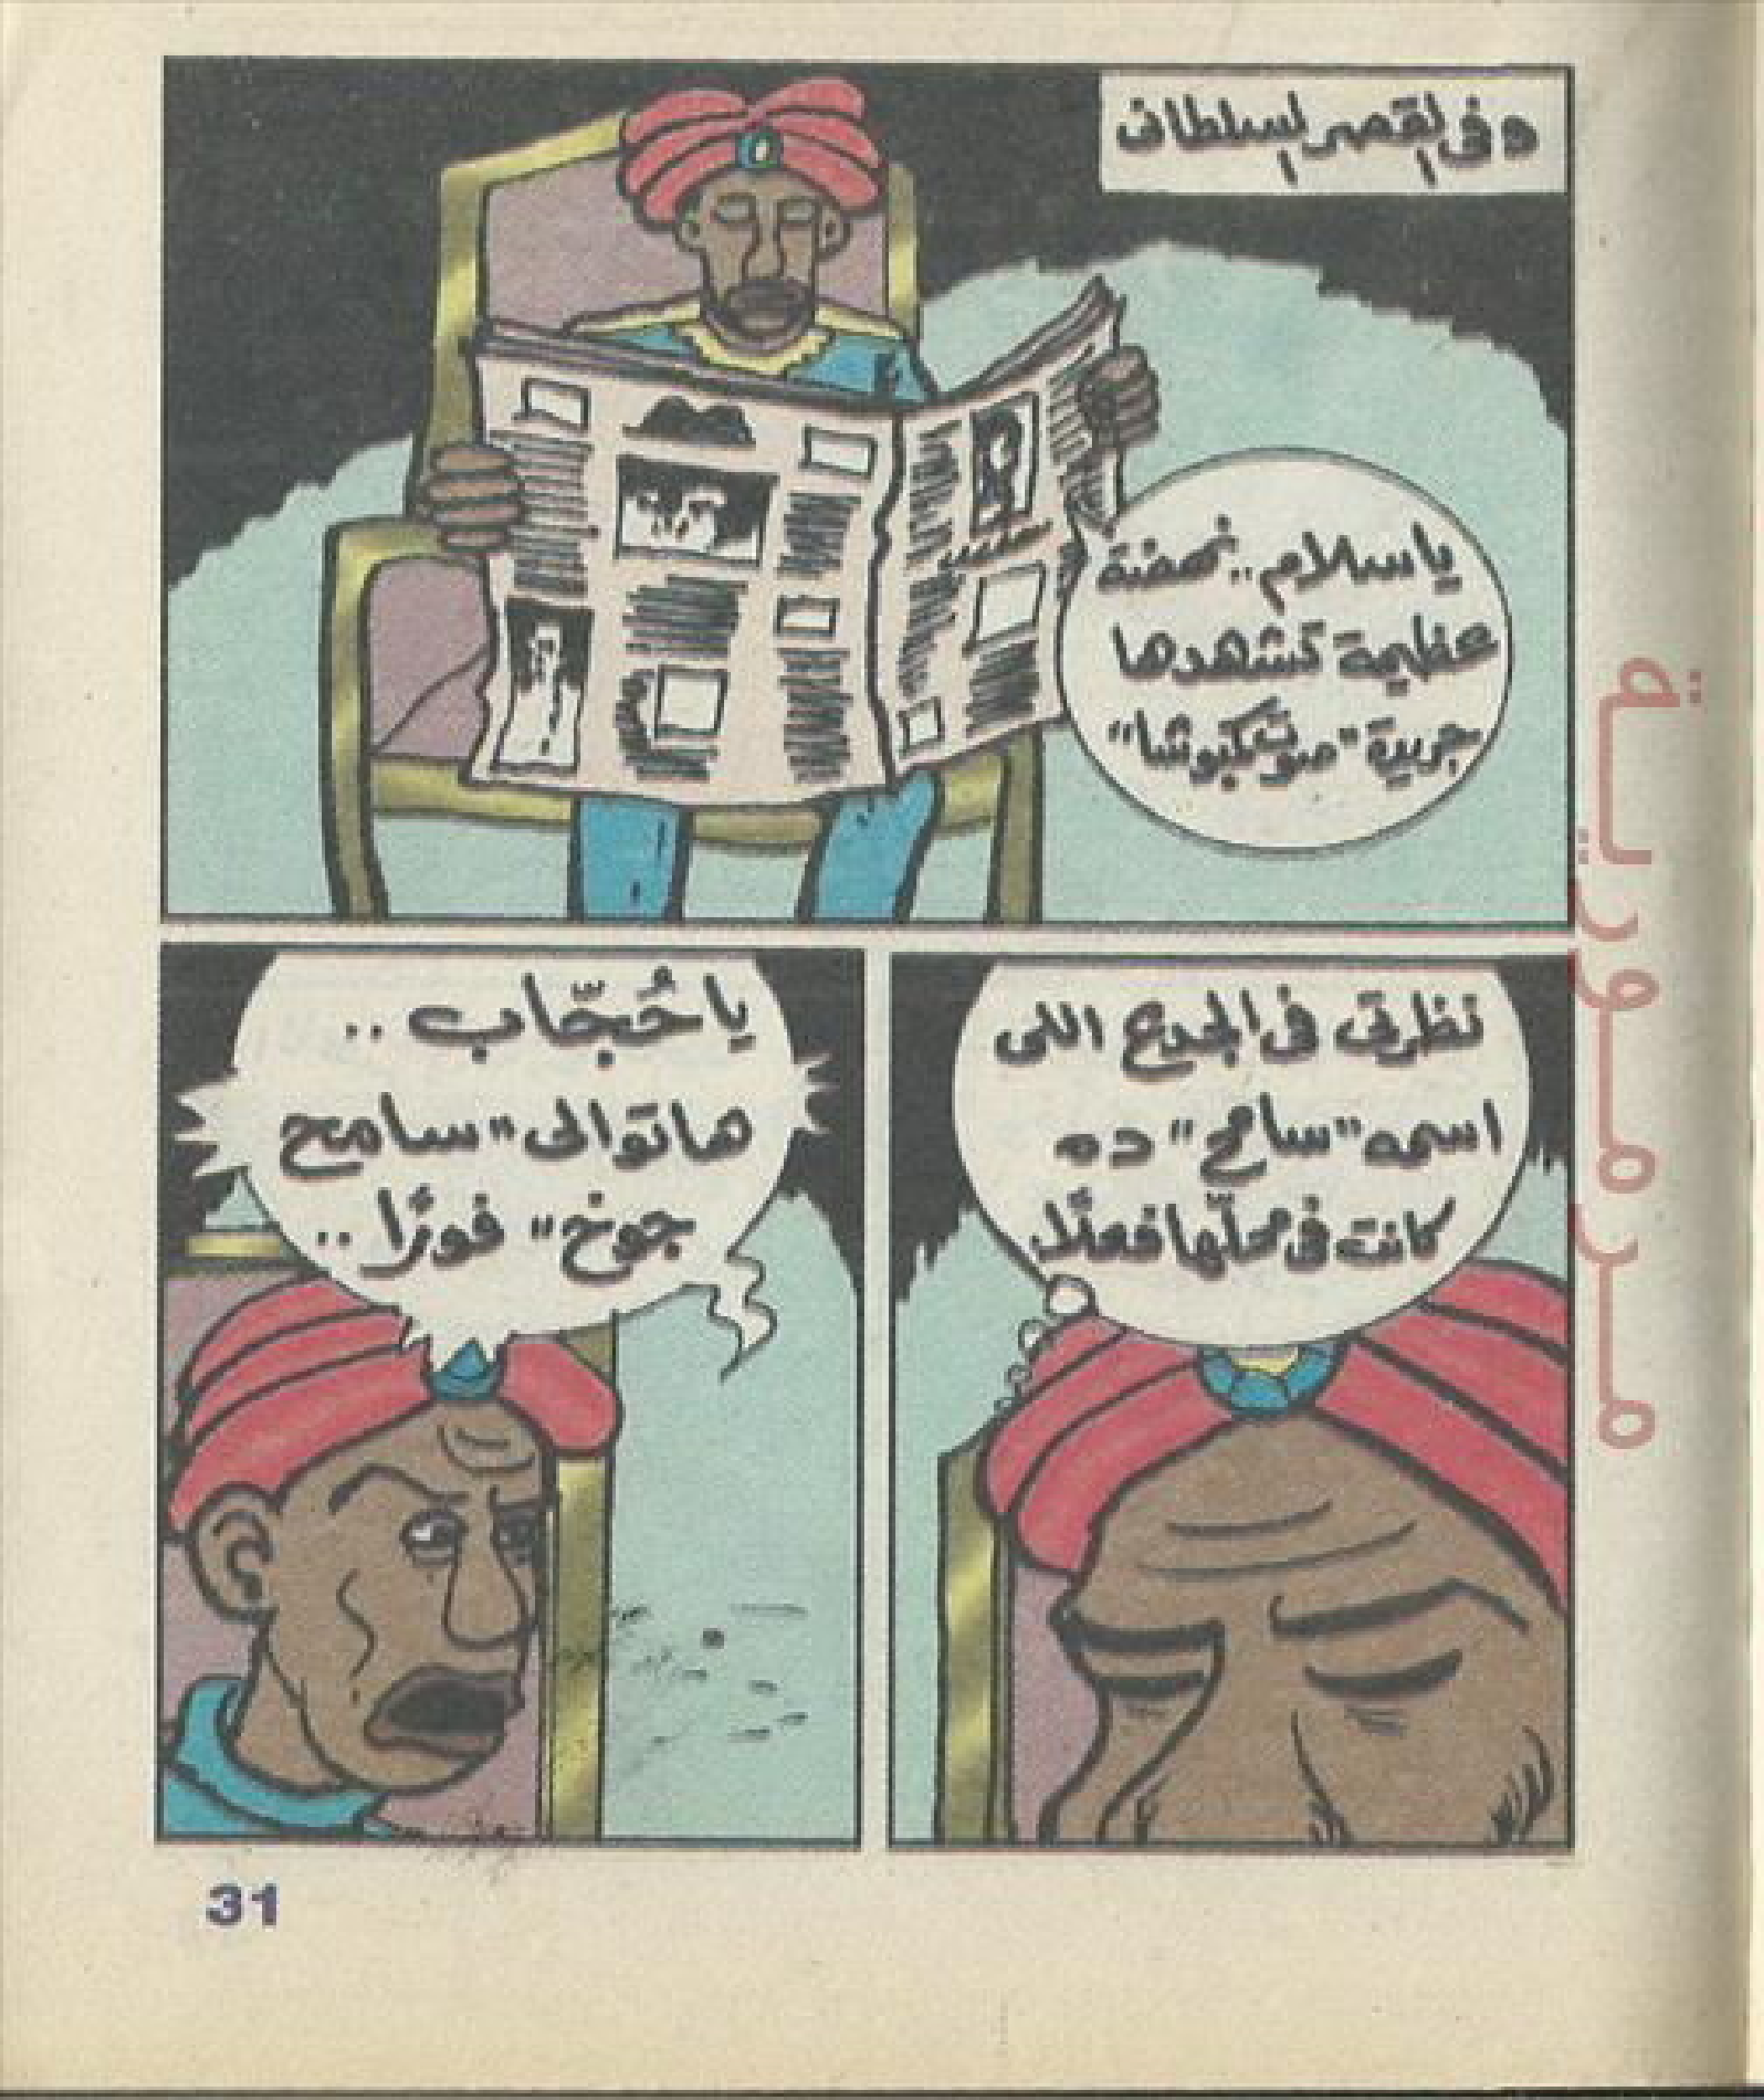 وفى القصر السلطانى
ياسلام.. نهضة
عظيمة تشهدها
جريدة "صوت كبوشا"
نظرتى فى الجدع اللى
اسمه "سامح" ده
كانت فى محلّها فعلًا..
يا حُجّاب..
هاتوا لى "سامح
جوخ" فورًا..
31
مردمورية